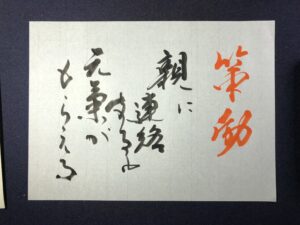 策動
親に
連絡
すると
元氣が
もらえる